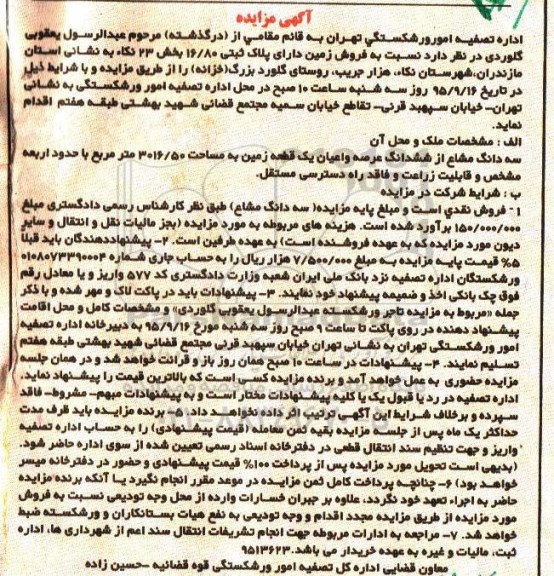 آگهی مزایده
اداره تصفیه امورورشکستگي تهران به قائم مقامي از (درگذشته) مرحوم عبدالرسول یعقوبی
گلوردی در نظر دارد نسبت به فروش زمین دارای پلاک ثبتی ۱۶/۸۰ بخش ۲۳ نکاء به نشانی استان
مازندران،شهرستان نکاء، هزار جریب، روستای گلورد بزرگ(خزانه) را از طریق مزایده و با شرایط ذیل
در تاریخ ۹۵/۹/۱۶ روز سه شنبه ساعت ۱۰ صبح در محل اداره تصفیه امور ورشکستگی به نشانی
تهران- خیابان سپهبد قرنی- تقاطع خیابان سمیه مجتمع قضائی شهید بهشتی طبقه هفتم اقدام
نماید.
الف : مشخصات ملک و محل آن
سه دانگ مشاع از ششدانگ عرصه واعیان یک قطعه زمین به مساحت ۳۰۱۶/۵۰ متر مربع با حدود اربعه
مشخص و قابلیت زراعت و فاقد راه دسترسی مستقل.
ب : شرایط شرکت در مزایده
۱- فروش نقدي است و مبلغ پایه مزایده( سه دانگ مشاع) طبق نظر کارشناس رسمی دادگستری مبلغ
۱۵۰/۰۰۰/۰۰۰ برآورد شده است. هزینه های مربوطه به مورد مزایده (بجز مالیات نقل و انتقال و سایر
دیون مورد مزایده که به عهده فروشنده است) به عهده طرفین است. ۲- پیشنهاددهندگان باید قبلاً
۵% قیمت پایه مزایده به مبلغ ۷/۵۰۰/۰۰۰ هزار ریال را به حساب جاری شماره ۰۱۰۸۰۷۳۳۹۰۰۰۴
ورشکستگان اداره تصفیه نزد بانک ملی ایران شعبه وزارت دادگستری کد ۵۷۷ واریز و یا معادل رقم
فوق چک بانکی اخذ و ضمیمه پیشنهاد خود نمایند. ۳- پیشنهادات باید در پاکت لاک و مهر شده و با ذکر
جمله «مربوط به مزایده تاجر ورشکسته عبدالرسول یعقوبی گلوردی» و مشخصات کامل و محل اقامت
پیشنهاد دهنده در روی پاکت تا ساعت ۹ صبح روز سه شنبه مورخ ۹۵/۹/۱۶ به دبیرخانه اداره تصفیه
امور ورشکستگی تهران به نشانی تهران خیابان سپهبد قرنی مجتمع قضائی شهید بهشتی طبقه هفتم
تسلیم نمایند. ۴- پیشنهادات در ساعت ۱۰ صبح همان روز باز و قرائت خواهد شد و در همان جلسه
مزایده حضوری به عمل خواهد آمد و برنده مزایده کسی است که بالاترین قیمت را پیشنهاد نماید.
اداره تصفیه در رد یا قبول یک یا کلیه پیشنهادات مختار است و به پیشنهادات مبهم- مشروط- فاقد
سپرده و برخلاف شرایط این آگهی ترتیب اثر داده نخواهد داد. ۵- برنده مزایده باید ظرف مدت
حداکثر یک ماه پس از جلسه مزایده بقیه ثمن معامله (قیمت پیشنهادی) را به حساب اداره تصفیه
واریز و جهت تنظیم سند انتقال قطعی در دفترخانه اسناد رسمی تعیین شده از سوی اداره حاضر شود.
(بدیهی است تحویل مورد مزایده پس از پرداخت ۱۰۰% قیمت پیشنهادی و حضور در دفترخانه میسر
خواهد بود) ۶- چنانچه پرداخت کامل ثمن مزایده در موعد مقرر انجام نگیرد یا آنکه برنده مزایده
حاضر به اجراء تعهد خود نگردد، علاوه بر جبران خسارات وارده از محل وجه تودیعی نسبت به فروش
مورد مزایده از طریق مزایده مجدد اقدام و وجه تودیعی به نفع هیات بستانکاران و ورشکسته ضبط
خواهد شد. ۷- مراجعه به ادارات مربوطه جهت انجام تشریفات انتقال سند اعم از شهرداری ها، اداره
ثبت، مالیات و غیره به عهده خریدار می باشد.۹۵۱۳۶۲۳
معاون قضایی اداره کل تصفیه امور ورشکستگی قوه قضائیه -حسین زاده